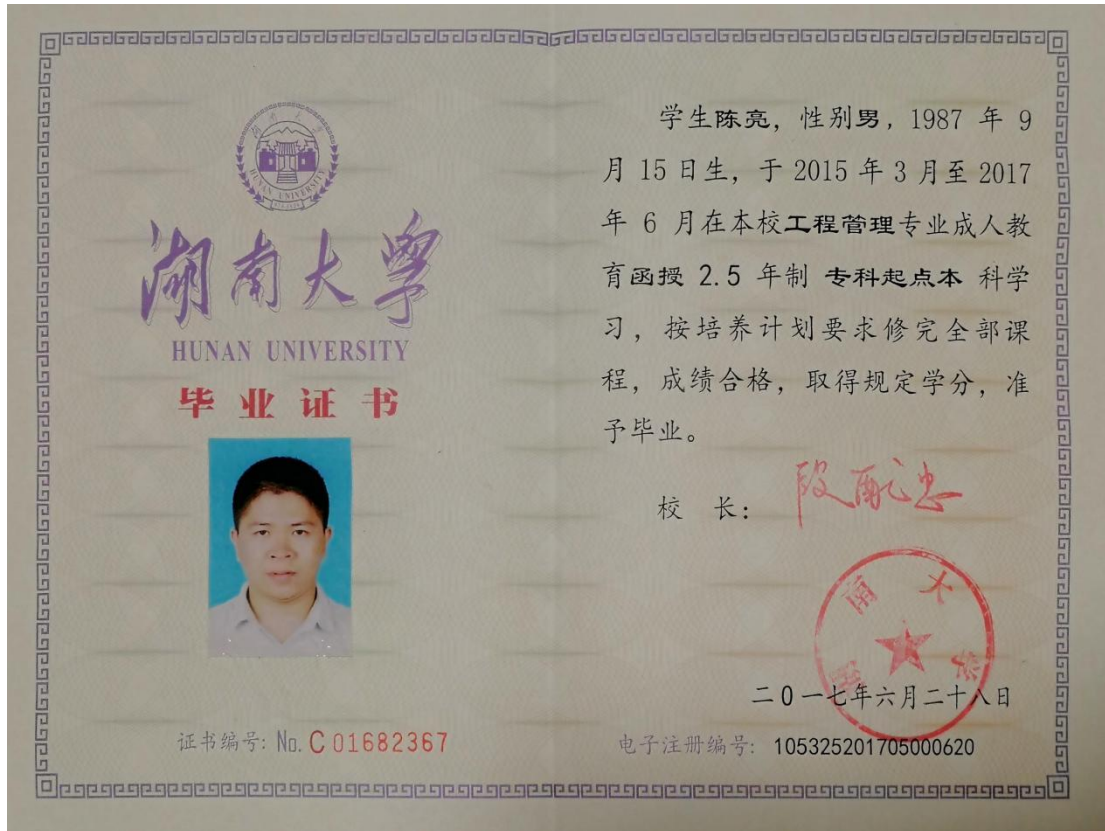 湖南大學
HUNAN UNIVERSITY
湖南大学
HUNAN UNIVERSITY
毕业证书
证书编号: No. C 01682367
学生陈亮，性别男，1987 年 9
月 15 日生，于 2015 年 3 月至 2017
年 6 月在本校工程管理专业成人教
育函授 2.5 年制 专科起点本 科学
习，按培养计划要求修完全部课
程，成绩合格，取得规定学分，准
予毕业。
校 长:
湖南大学
二0一七年六月二十八日
电子注册编号: 105325201705000620